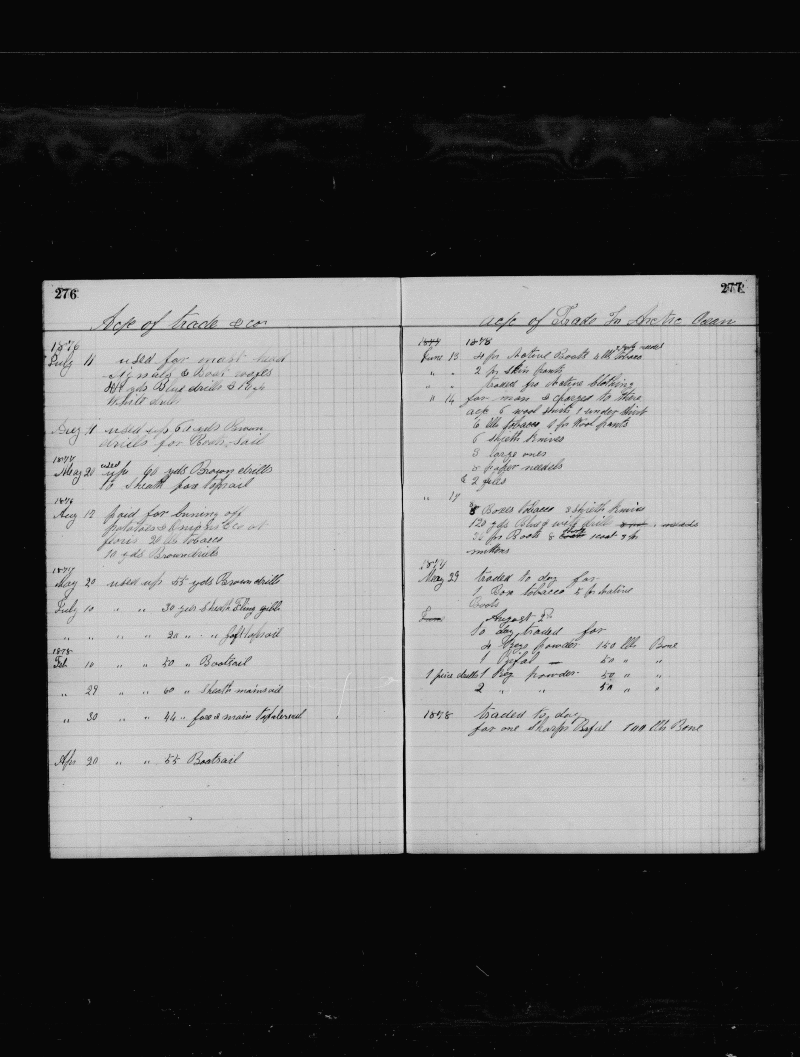 276
Ac/c of trade & co
1876
July 11 used for mast head
signals & Boat wafes
44 yds Blue drills & 10 yds
White drill
Aug 1 used up 6 yds Brown
drills for Boat sail
1877
May 20 used up 90 yds Brown drills
to sheath fore topsail
1876
Aug 12 paid for bring off
potatoes & Onions & co at
20 lbs tobacco
10 yds Brown drills
1877
May 20 used up 55 yds Brown drills
July 10 " " 30 yds sheath Fling gibb
" " " " 20 " " foretopsail
1878
Feb 10 " " 50 " Boatsail
" 29 " " 60 " sheath mainsail
" 30 " " 44 " fore & main
Apr 20 " " 55 Boatsail
277
ac/c of Trade In Arctic Ocean
1877 1878
June 13 4 pr Native Boots 2 lb Tobaco
" " 2 pr skin pants
" " traded fro Native Clothing
" 14 for man & charges to there
ac/c 6 wool shirts 1 under shirt
6 lbs tobacco 1 pr Wool pants
6 sheath knives
3 large ones
paper needels
& 2 files
" 14
8 Boxes tobacco 3 sheith knives
120 yds Blue & wite drill needs
32 pr Boots & 1 coat 3 pr
mittens
1877
May 29 traded to day for
1 Box tobacco 5 pr native
Boots
June August 2
to day traded for
4 kegs powder 150 lbs Bone
1 Rifal — 50 " "
1 piece drills 1 keg powder 50 " "
2 " " 50 " "
1878 traded to day
for one sharps Rifal 100 lbs Bone